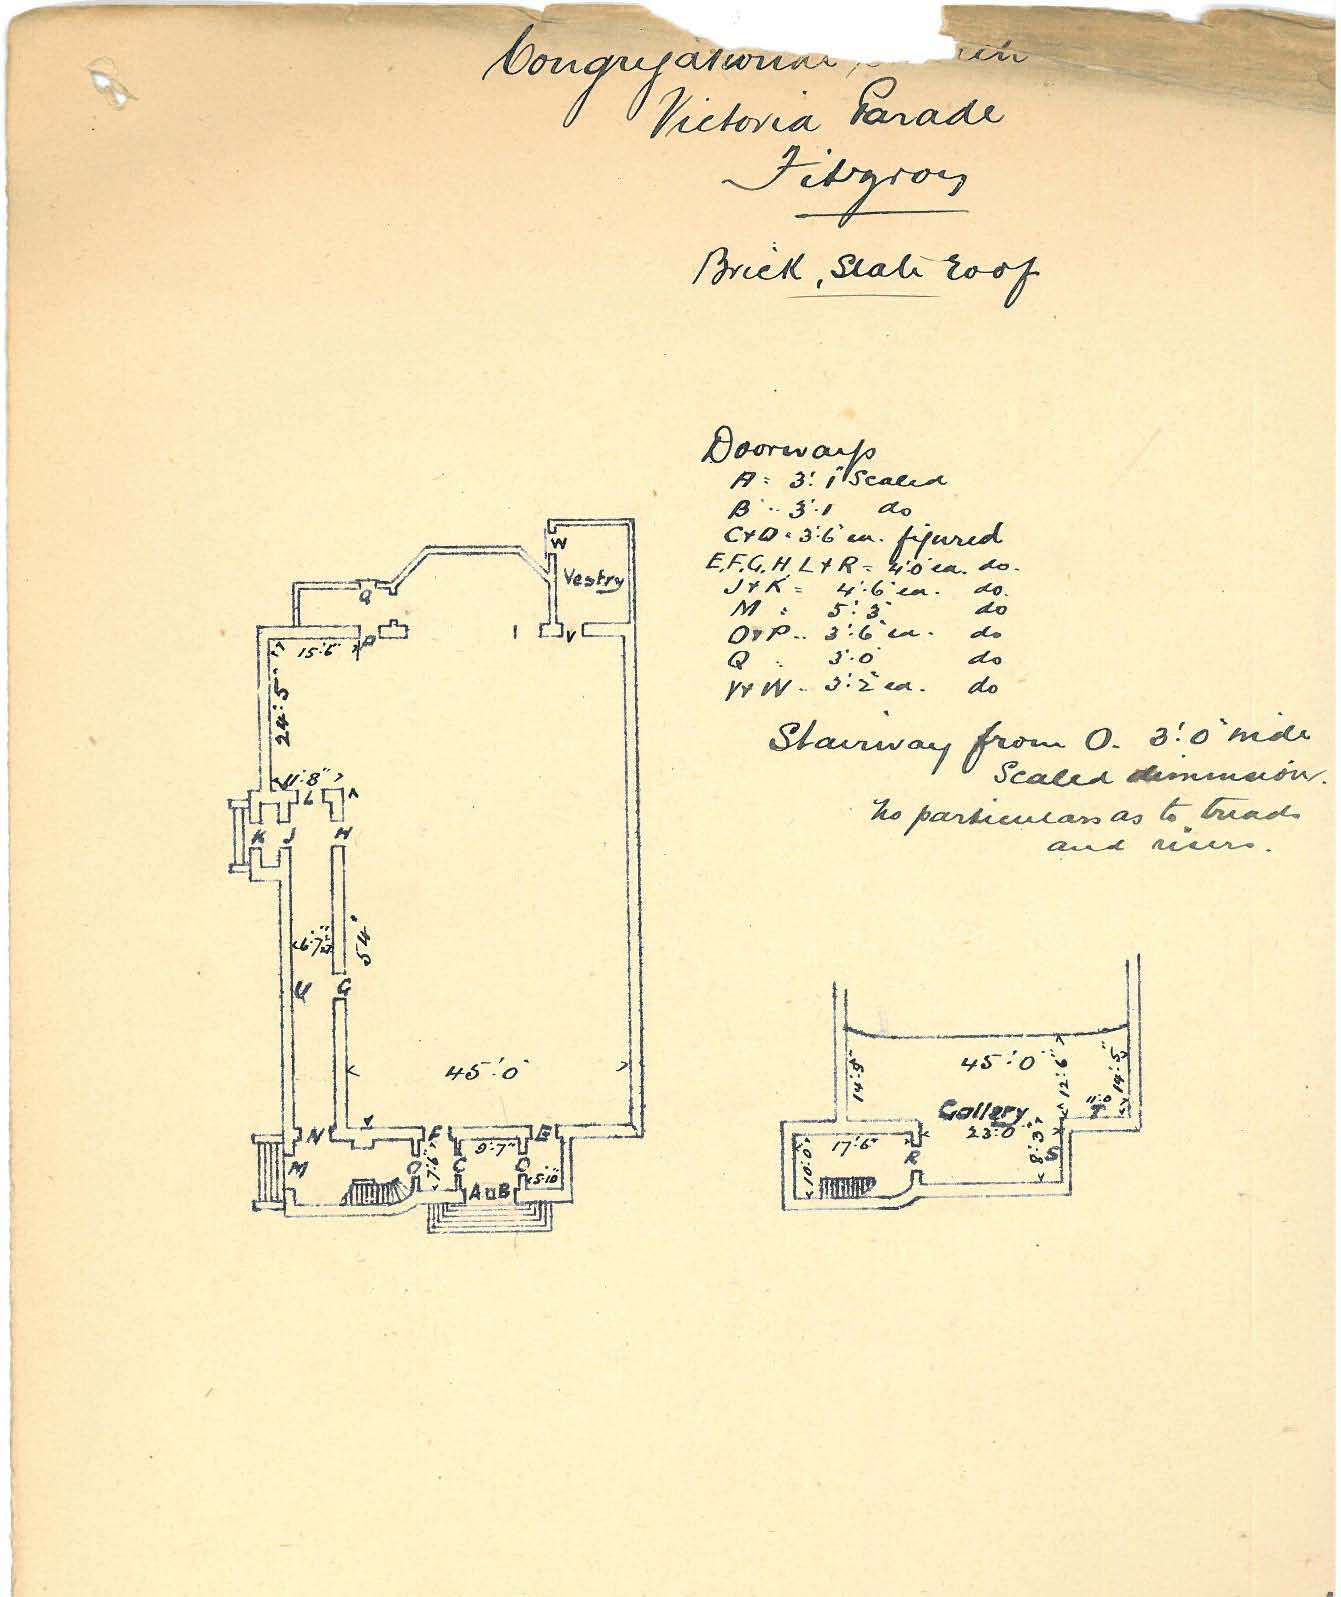 Congregational
Victoria Parade
Fitzroy
Brick, Slate roof
Doorways
A = 3'.1" Scaled
B .. 3'.1 do
C+D = 3'.6" ea. figured
E,F,G,H, L+R = 4'.0" ea. do.
J+K = 4'.6" ea. do.
M = 5'.3" do
O+P .. 3'.6" ea. do
Q . 3'.0" do
V+W .. 3'.2" ea. do
Stairway from O. 3'.0" wide
Scaled dimension.
No particulars as to treads
and risers.
W
Vestry
Q
P
I
V
15'.6"
24'.5"
11'.8"
L
K J H
6'.7½"
54'
U G
45'.0"
N F E
M O 7'.6" C 9'.7" D 5'.10
A B
14'.9"
45'.0"
12'.6"
14'.5"
Gallery
11'.0
T
23'.0"
17'.6"
10'.0"
R
8'.3"
S